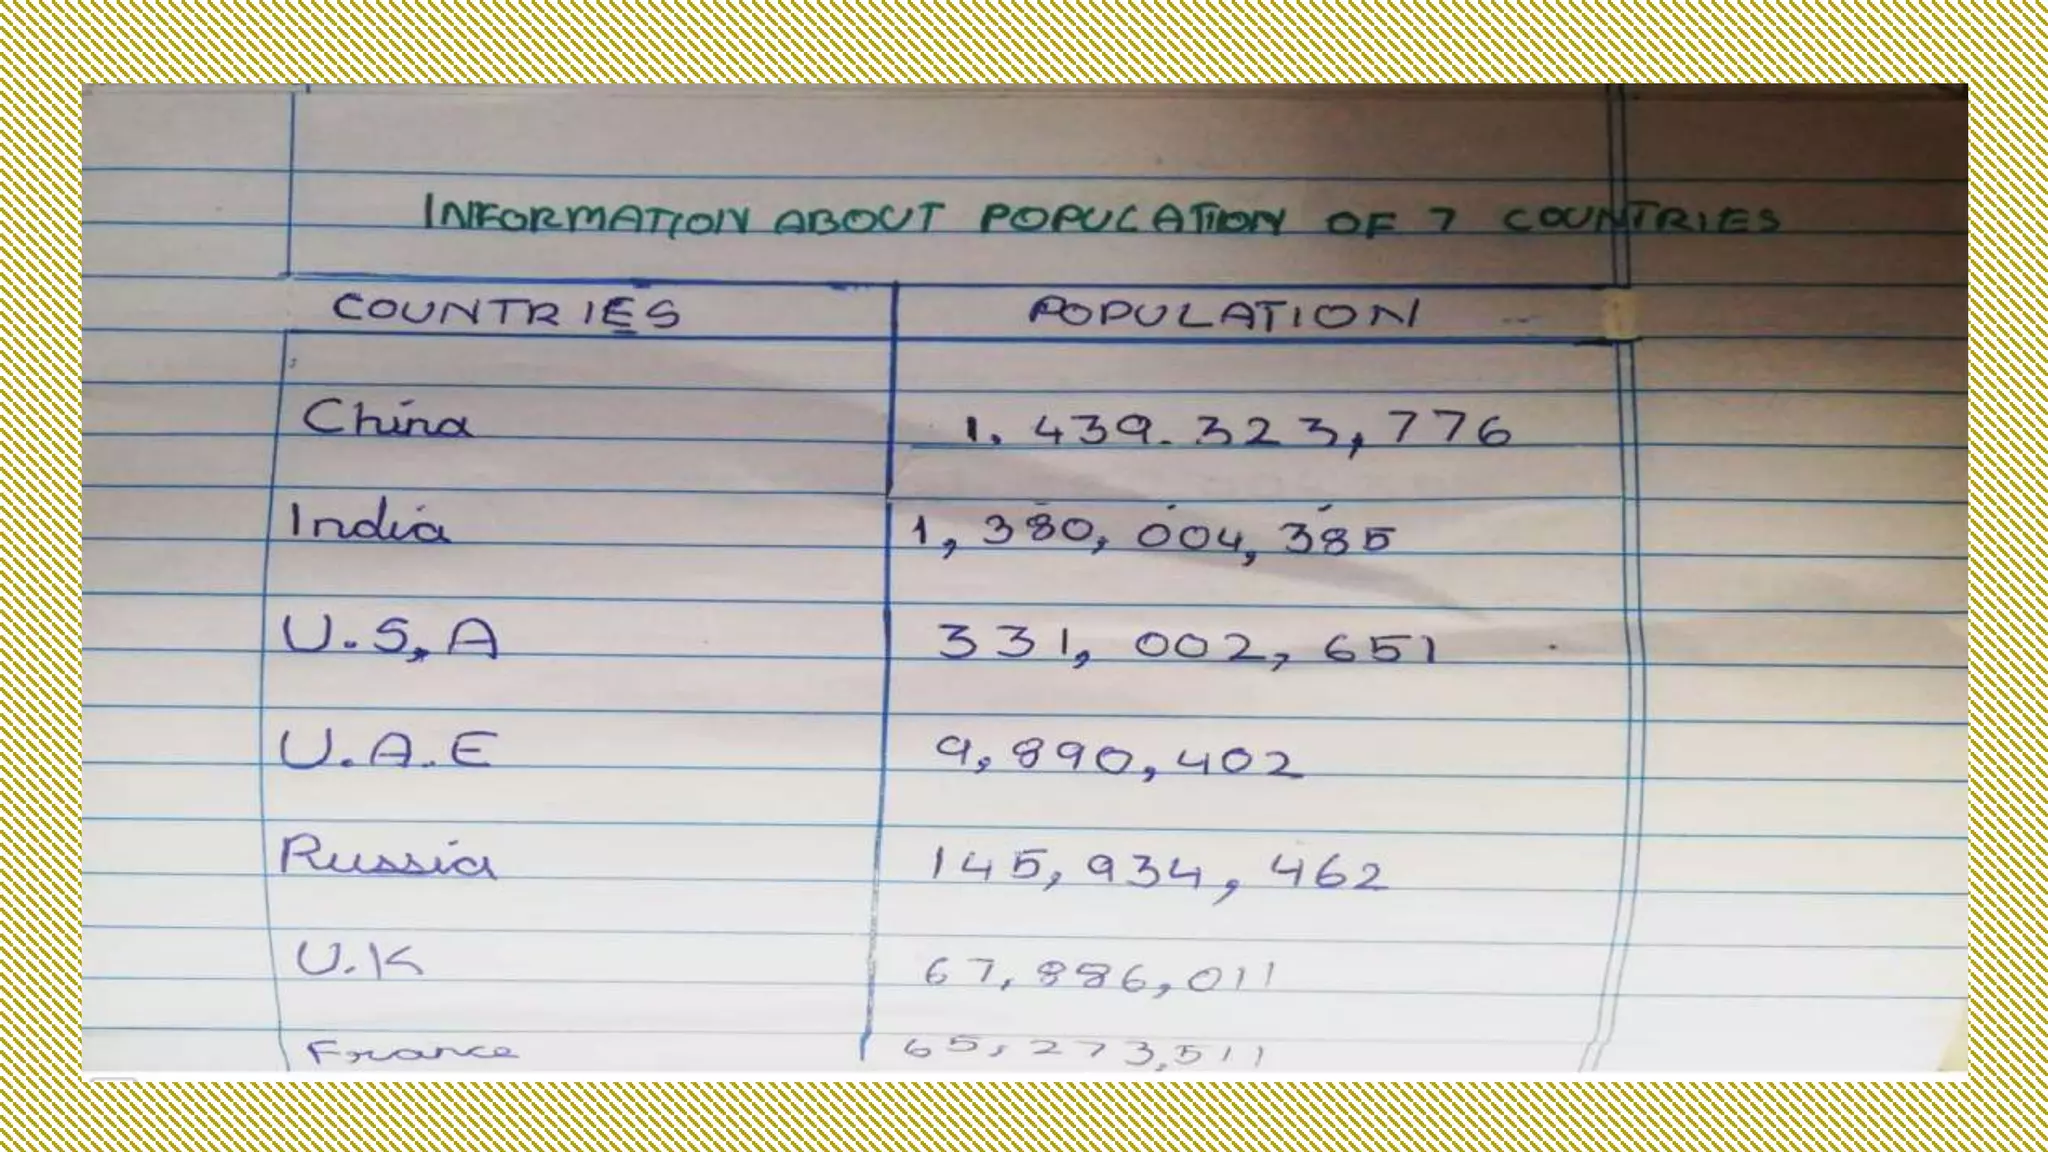 INFORMATION ABOUT POPULATION OF 7 COUNTRIES
COUNTRIES POPULATION
China 1. 439. 323, 776
India 1, 380, 004, 385
U.S,A 331, 002, 651
U.A.E 9,890,402
Russia 145, 934, 462
U.K 67,886,011
France 65,273,511